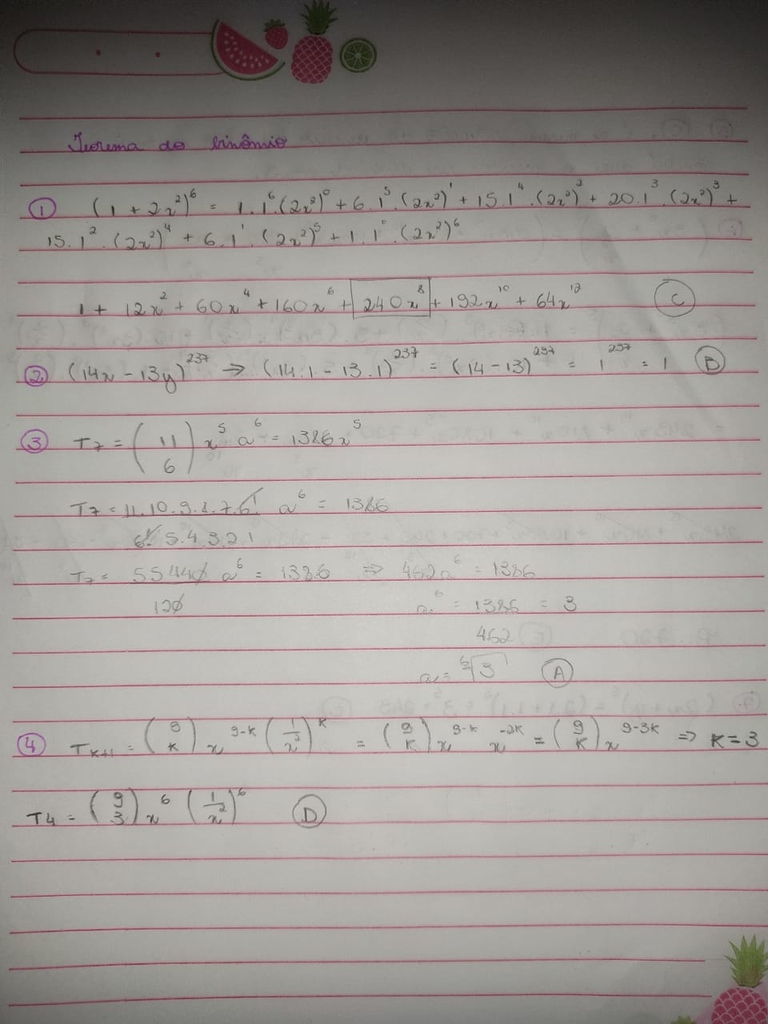 Teorema do binômio
① (1 + 2x²)⁶ = 1.1⁶.(2x²)⁰ + 6.1⁵.(2x²)¹ + 15.1⁴.(2x²)² + 20.1³.(2x²)³ +
15.1².(2x²)⁴ + 6.1¹.(2x²)⁵ + 1.1⁰.(2x²)⁶
1 + 12x² + 60x⁴ + 160x⁶ + 240x⁸ + 192x¹⁰ + 64x¹² C
② (14x - 13y)²³⁷ → (14.1 - 13.1)²³⁷ = (14 - 13)²³⁷ = 1²³⁷ = 1 B
③ T7 = (11 6) x⁵ a⁶ = 1386x⁵
T7 = 11.10.9.8.7.6! a⁶ = 1386
6! 5.4.3.2.1
T7 = 55440 a⁶ = 1386 ⇒ 462a⁶ = 1386
120 a⁶ = 1386 = 3
462
a = ⁶√3 A
④ Tk+1 = (9 k) x⁹⁻ᵏ (1/x²)ᵏ = (9 k) x⁹⁻ᵏ x⁻²ᵏ = (9 k) x⁹⁻³ᵏ ⇒ K = 3
T4 = (9 3) x⁶ (1/x²)⁶ D